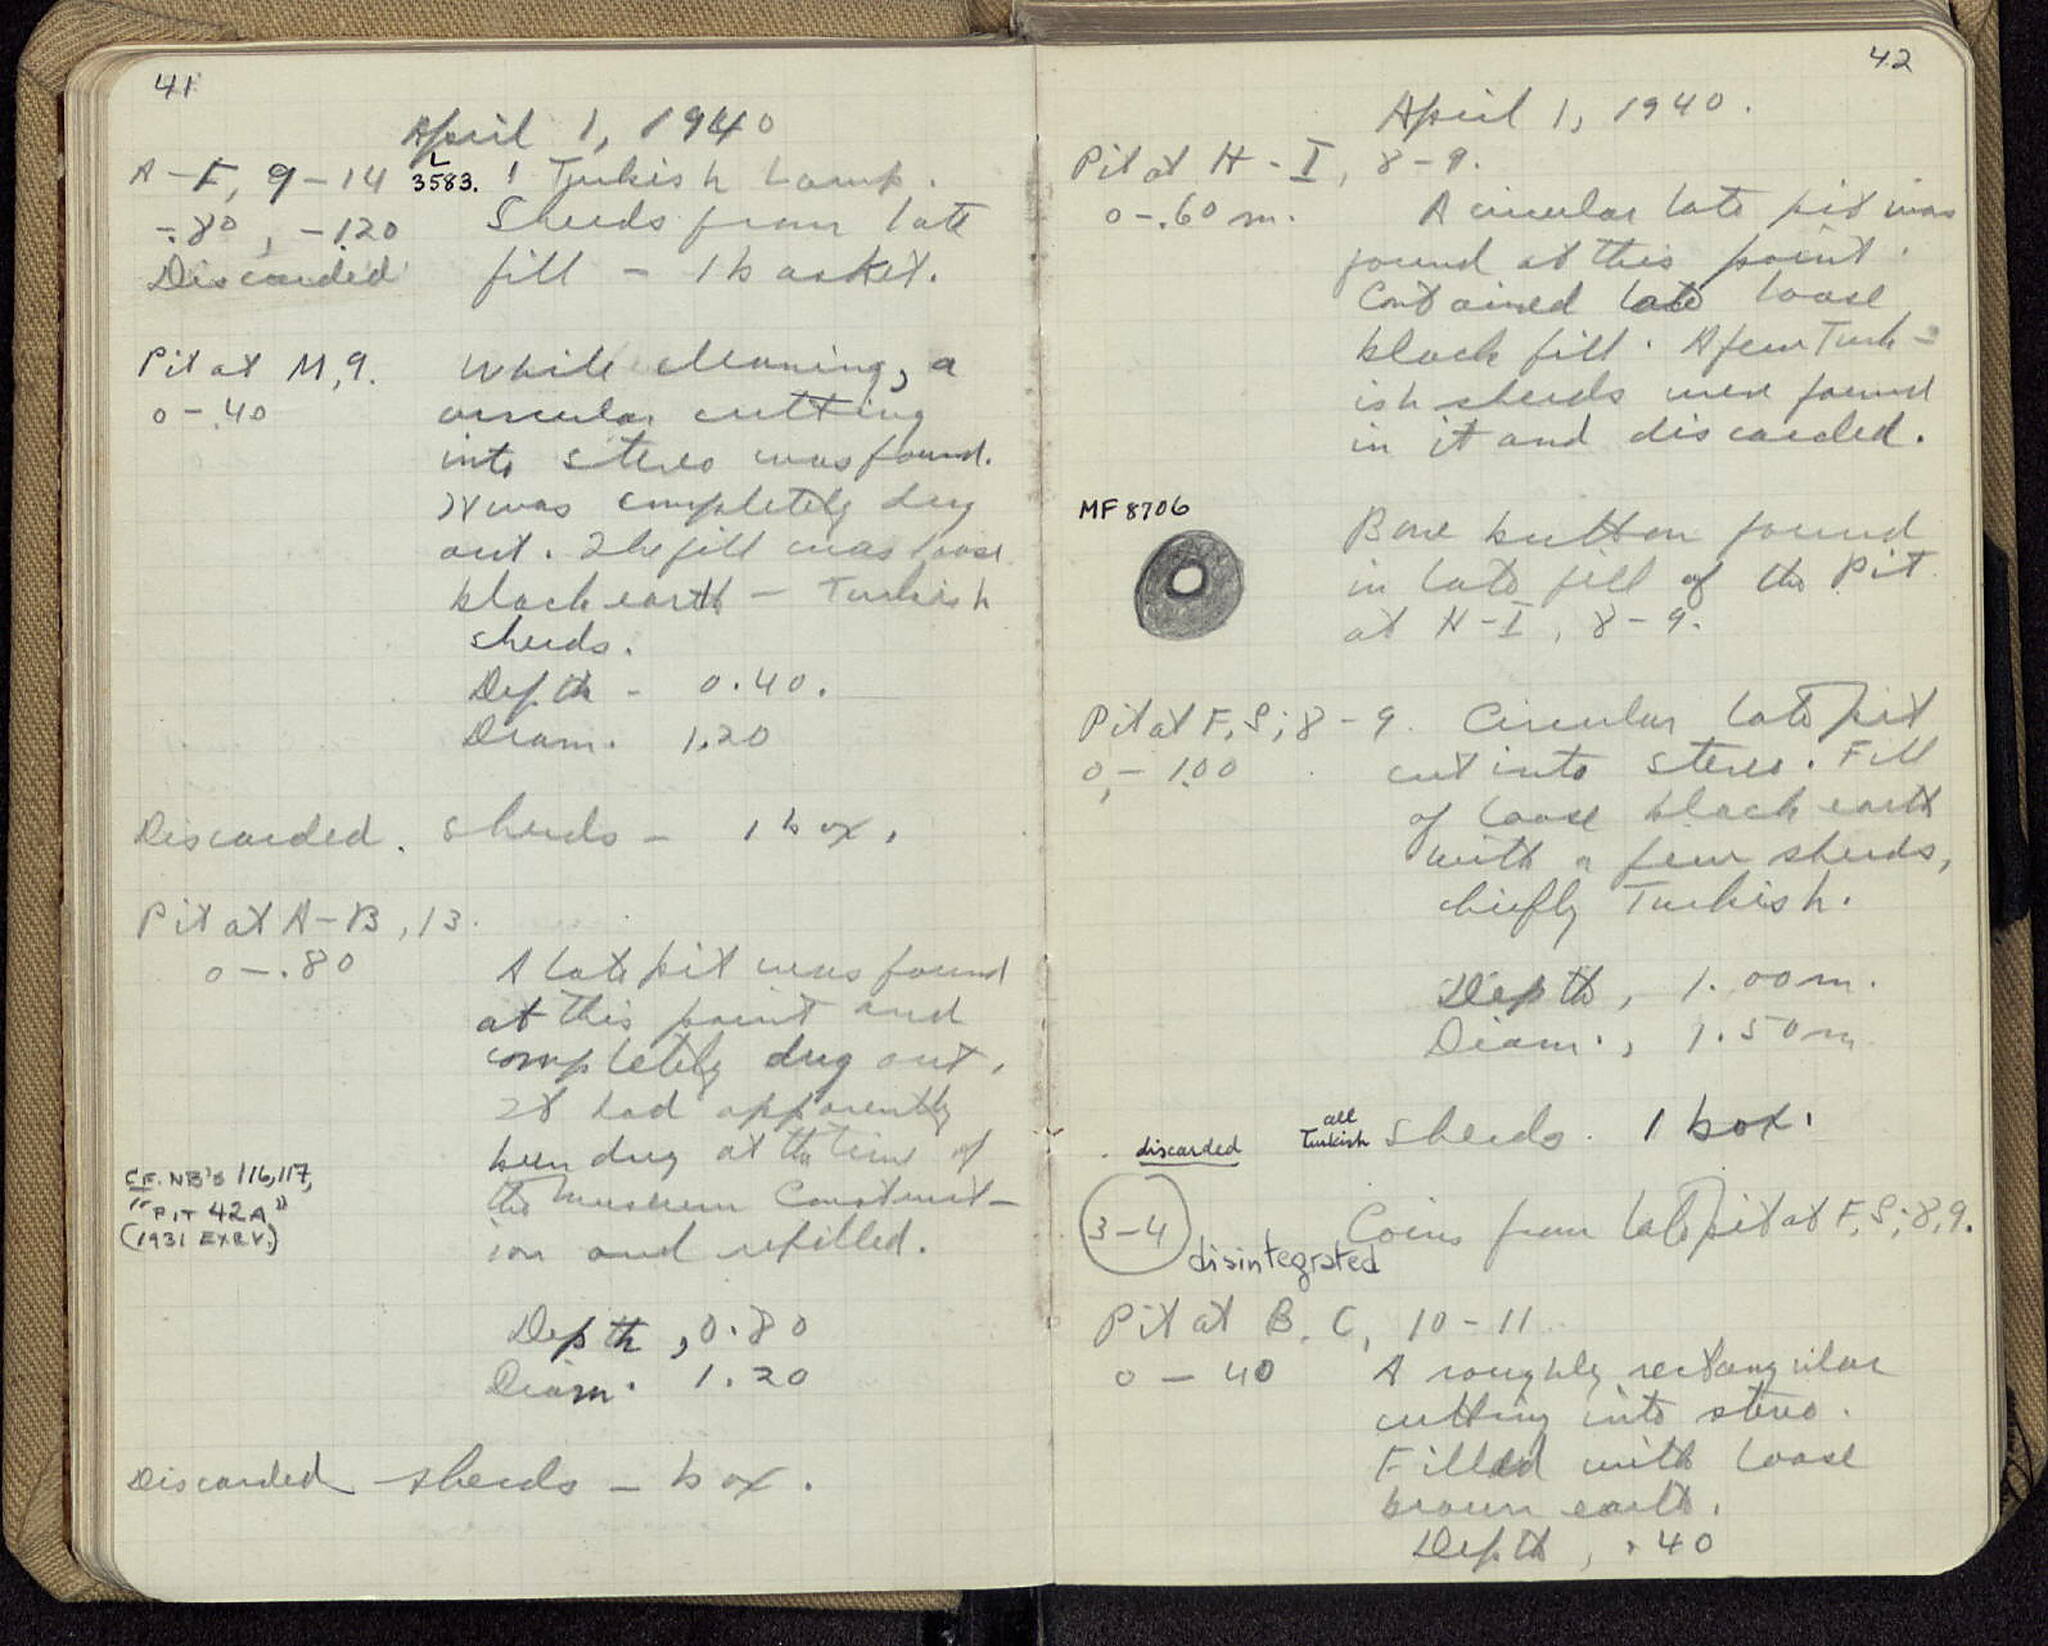 41
April 1, 1940
A-F, 9-14 L 3583. 1 Turkish Lamp.
-.80, -1.20 Sherds from late
Discarded fill - 1 basket.
Pit at M, 9. While cleaning, a
0-.40 circular cutting
into stereo was found.
It was completely dug
out. The fill was loose
black earth - Turkish
sherds.
Depth - 0.40.
Diam. 1.20
Discarded. Sherds - 1 box.
Pit at A-B, 13.
0-.80 A late pit was found
at this point and
completely dug out.
It had apparently
been dug at the time of
CF. NB'S 116, 117, the Museum Construct-
"PIT 42A" ion and refilled.
(1931 EXCV.)
Depth, 0.80
Diam. 1.20
Discarded sherds - box.
42
April 1, 1940.
Pit at H-I, 8-9.
0-.60 m. A circular late pit was
found at this point.
Contained late loose
black fill. A few Turk-
ish sherds were found
in it and discarded.
MF 8706 Bone button found
in late fill of the Pit
at H-I, 8-9.
Pit at F, S; 8-9. Circular late pit
0,- 1.00 cut into stereo. Fill
of loose black earth
with a few sherds,
chiefly Turkish.
Depth, 1.00 m.
Diam., 1.50 m
discarded all Turkish Sherds. 1 box.
3-4 disintegrated Coins from late pit at F, S; 8, 9.
Pit at B, C, 10-11.
0-40 A roughly rectangular
cutting into stereo.
Filled with loose
brown earth.
Depth, .40